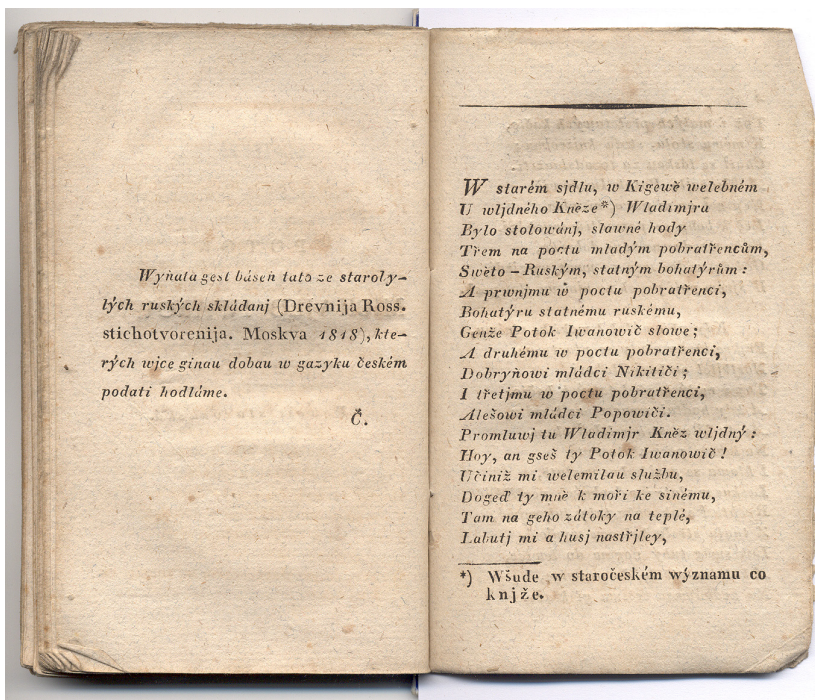 Wyňata gest báseň tato ze staroby-
lých ruských skládanj (Drevnija Ross.
stichotvorenija. Moskva 1818), kte-
rých wjce ginau dobau w gazyku českém
podati hodláme.
Č.
W starém sjdlu, w Kigewě welebném
U wljdného Kněze*) Wladimjra
Bylo stolowánj, slawné hody
Třem na poctu mladým pobratřencům,
Swěto-Ruským, statným bohatýrům:
A prwnjmu w poctu pobratřenci,
Bohatýru statnému ruskému,
Genže Potok Iwanowič slowe;
A druhému w poctu pobratřenci,
Dobryňowi mládci Nikitiči;
I třetjmu w poctu pobratřenci,
Alešowi mládci Popowiči.
Promluwj tu Wladimjr Kněz wljdný:
Hoy, an gseš ty Potok Iwanowič!
Učiniž mi welemilau službu,
Dogeď ty mně k moři ke sinému,
Tam na geho zátoky na teplé,
Labutj mi a husj nastřjley,
*) Wšude w staročeském wýznamu co
knjže.